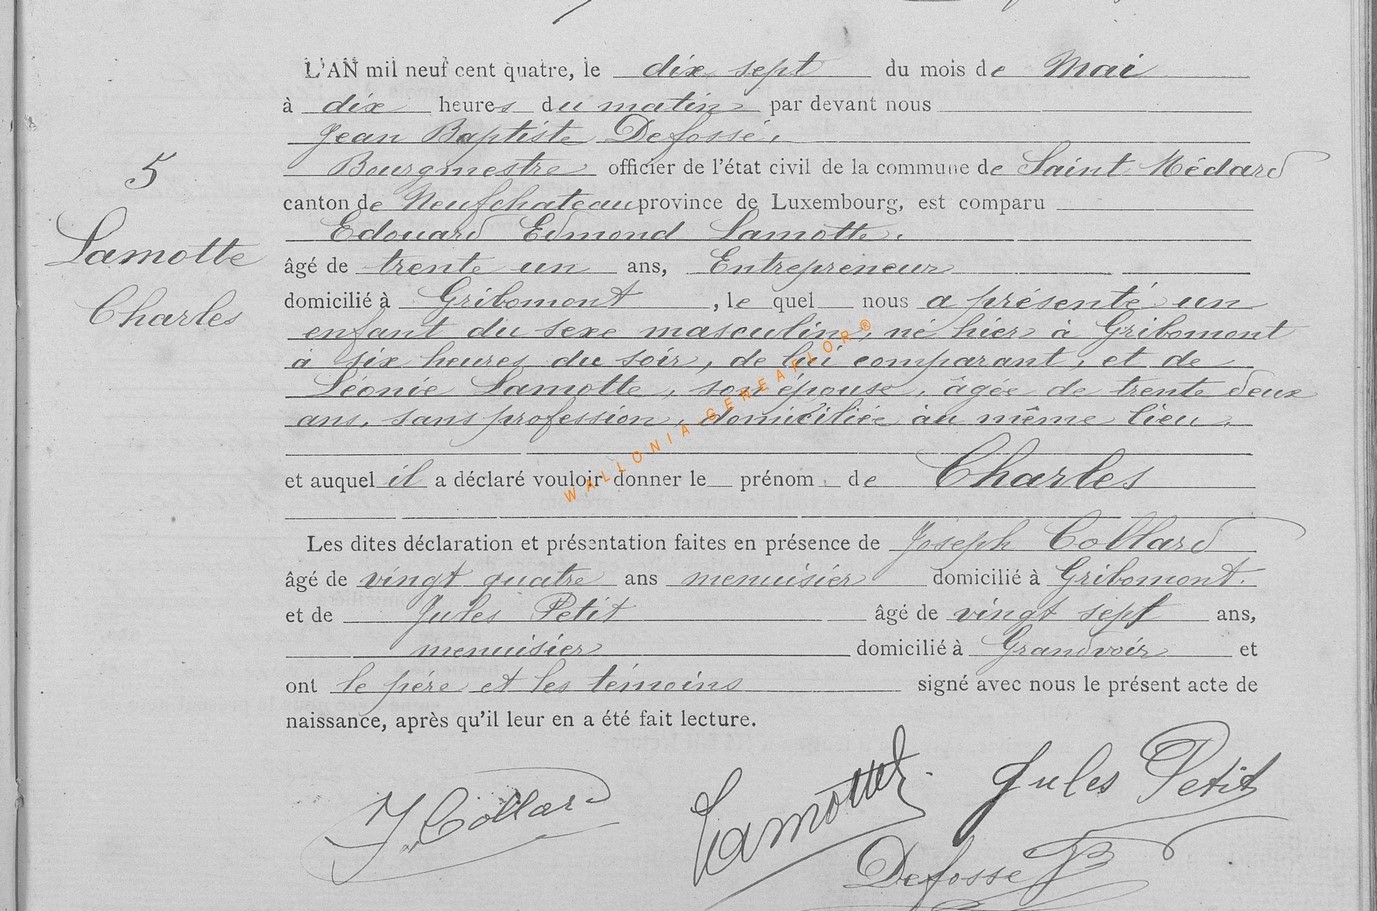 L'AN mil neuf cent quatre, le dix sept du mois de Mai
à dix heures du matin par devant nous
Jean Baptiste Defossé,
Bourgmestre officier de l'état civil de la commune de Saint Médard
canton de Neufchateau province de Luxembourg, est comparu
Edouard Edmond Lamotte,
âgé de trente un ans, Entrepreneur
domicilié à Gribomont, le quel nous a présenté un
enfant du sexe masculin, né hier à Gribomont
à six heures du soir, de lui comparant, et de
Léonie Lamotte, son épouse, âgée de trente deux
ans, sans profession, domiciliée au même lieu,
et auquel il a déclaré vouloir donner le prénom de Charles
Les dites déclaration et présentation faites en présence de Joseph Collard
âgé de vingt quatre ans menuisier domicilié à Gribomont.
et de Jules Petit âgé de vingt sept ans,
menuisier domicilié à Grandvoir et
ont le père et les témoins signé avec nous le présent acte de
naissance, après qu'il leur en a été fait lecture.
5
Lamotte
Charles
J. Collard
Lamotte
Jules Petit
Defosse JB
WALLONIA GENEAFLOR®